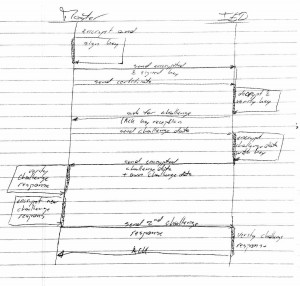 encrypt and
sign key
send encrypted
& signed key
send certificate
decrypt &
verify key
ask for challenge
(Ack key reception
send challenge data
encrypt
challenge data
with key
send encrypted
challenge data
+ own challenge data
verify
challenge
response
encrypt new
challenge
response
send 2nd challenge
response
verify challenge
response
ACK